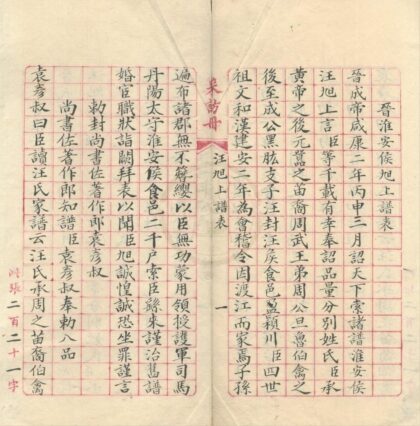 晉淮安侯旭上譜表
晉成帝咸康二年丙申三月詔天下索諸譜淮安侯
汪旭上言臣等千載有幸奉詔品量分別姓氏臣承
黃帝之後元囂之苗裔周武王弟周公旦魯伯禽之
後至成公黑肱支子汪封汪侯食邑
潁川臣四世
祖文和漢建安二年為會稽令因渡江而家焉子孫
采訪冊
汪旭上譜表
一
遍布諸郡無不簪纓以臣無功蒙用領授護軍司馬
丹陽太守淮安侯食邑二千戶索臣繇來謹治舊譜
婚宦職狀詣闕拜表以聞臣旭誠惶誠恐坐罪謹言
勅封尚書佐著作郎袁彥叔
尚書佐著作郎知譜臣袁彥叔奉勅入品
袁彥叔曰臣讀汪氏家譜云汪氏承周之苗裔伯禽
張二百二十一字